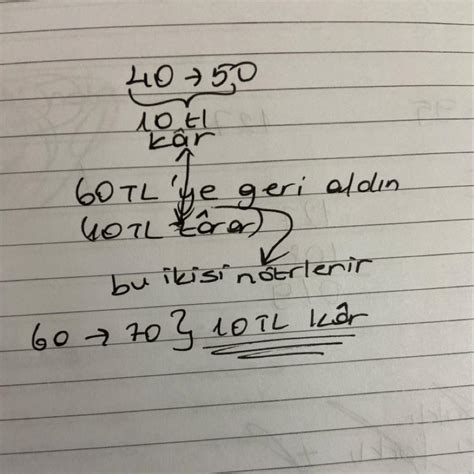 40 → 50
10 tl
kâr
60TL'ye geri aldın
(10TL zarar)
bu ikisi nötrlenir
60 → 70 } 10TL kâr